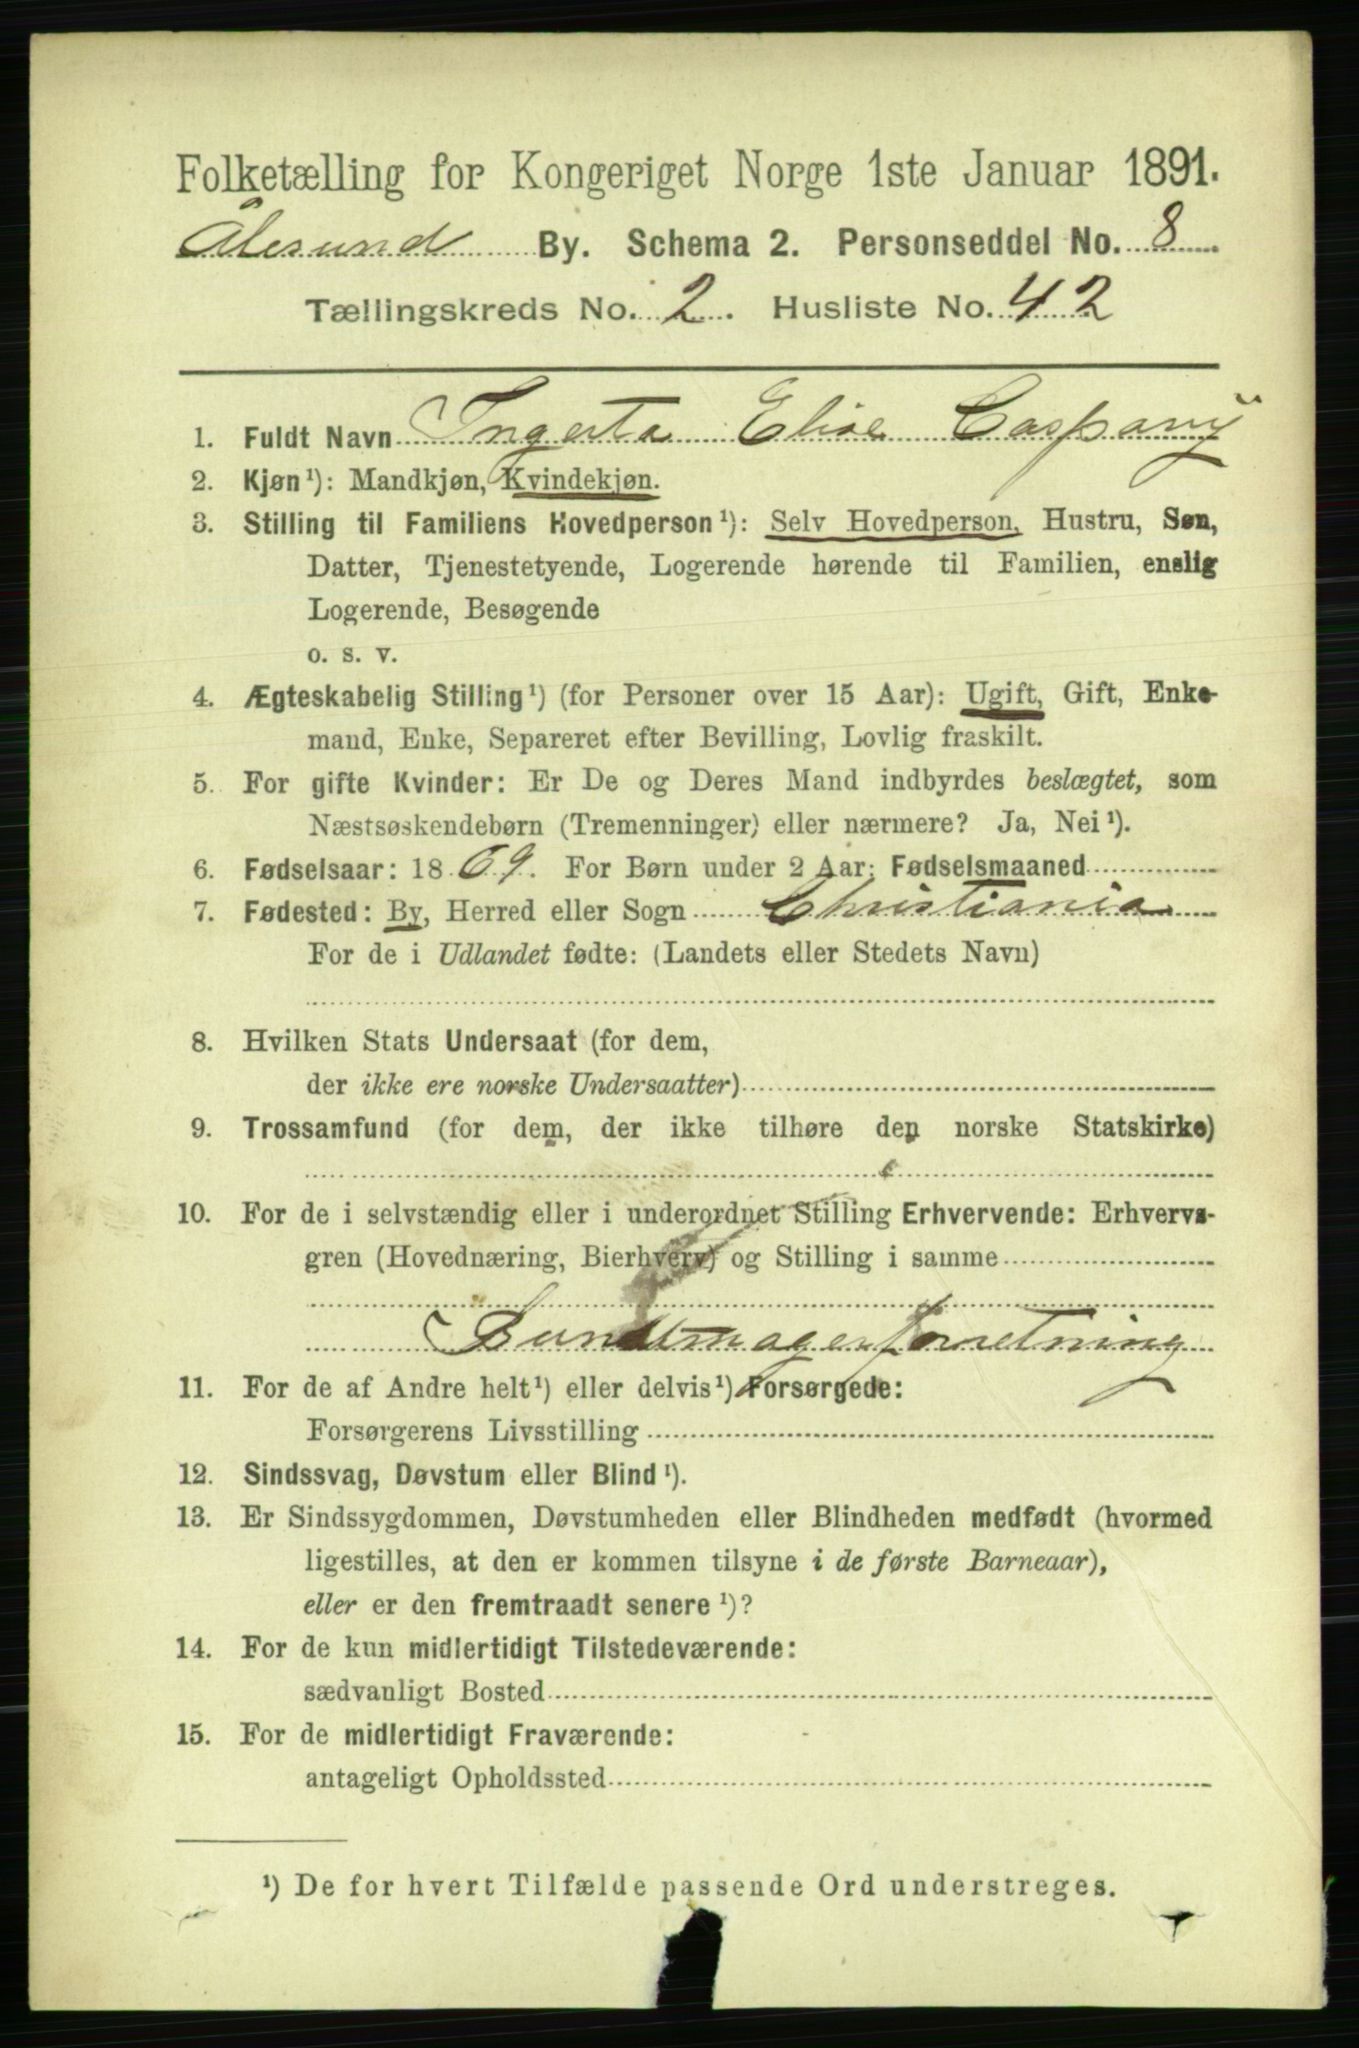 Folketælling for Kongeriget Norge 1ste Januar 1891.
Ålesund By. Schema 2. Personseddel No. 8
Tællingskreds No. 2. Husliste No. 42
1. Fuldt Navn Ingerta Elise Casparÿ
2. Kjøn¹): Mandkjøn, Kvindekjøn.
3. Stilling til Familiens Hovedperson¹): Selv Hovedperson, Hustru, Søn,
Datter, Tjenestetyende, Logerende hørende til Familien, enslig
Logerende, Besøgende
o. s. v.
4. Ægteskabelig Stilling¹) (for Personer over 15 Aar): Ugift, Gift, Enke-
mand, Enke, Separeret efter Bevilling, Lovlig fraskilt.
5. For gifte Kvinder: Er De og Deres Mand indbyrdes beslægtet, som
Næstsøskendebørn (Tremenninger) eller nærmere? Ja, Nei¹).
6. Fødselsaar: 1869. For Børn under 2 Aar: Fødselsmaaned
7. Fødested: By, Herred eller Sogn Christiania
For de i Udlandet fødte: (Landets eller Stedets Navn)
8. Hvilken Stats Undersaat (for dem,
der ikke ere norske Undersaatter)
9. Trossamfund (for dem, der ikke tilhøre den norske Statskirke)
10. For de i selvstændig eller i underordnet Stilling Erhvervende: Erhvervs-
gren (Hovednæring, Bierhverv) og Stilling i samme
Bundtmagerforretning
11. For de af Andre helt¹) eller delvis¹) Forsørgede:
Forsørgerens Livsstilling
12. Sindssvag, Døvstum eller Blind¹).
13. Er Sindssygdommen, Døvstumheden eller Blindheden medfødt (hvormed
ligestilles, at den er kommen tilsyne i de første Barneaar),
eller er den fremtraadt senere¹)?
14. For de kun midlertidigt Tilstedeværende:
sædvanligt Bosted
15. For de midlertidigt Fraværende:
antageligt Opholdssted
¹) De for hvert Tilfælde passende Ord understreges.